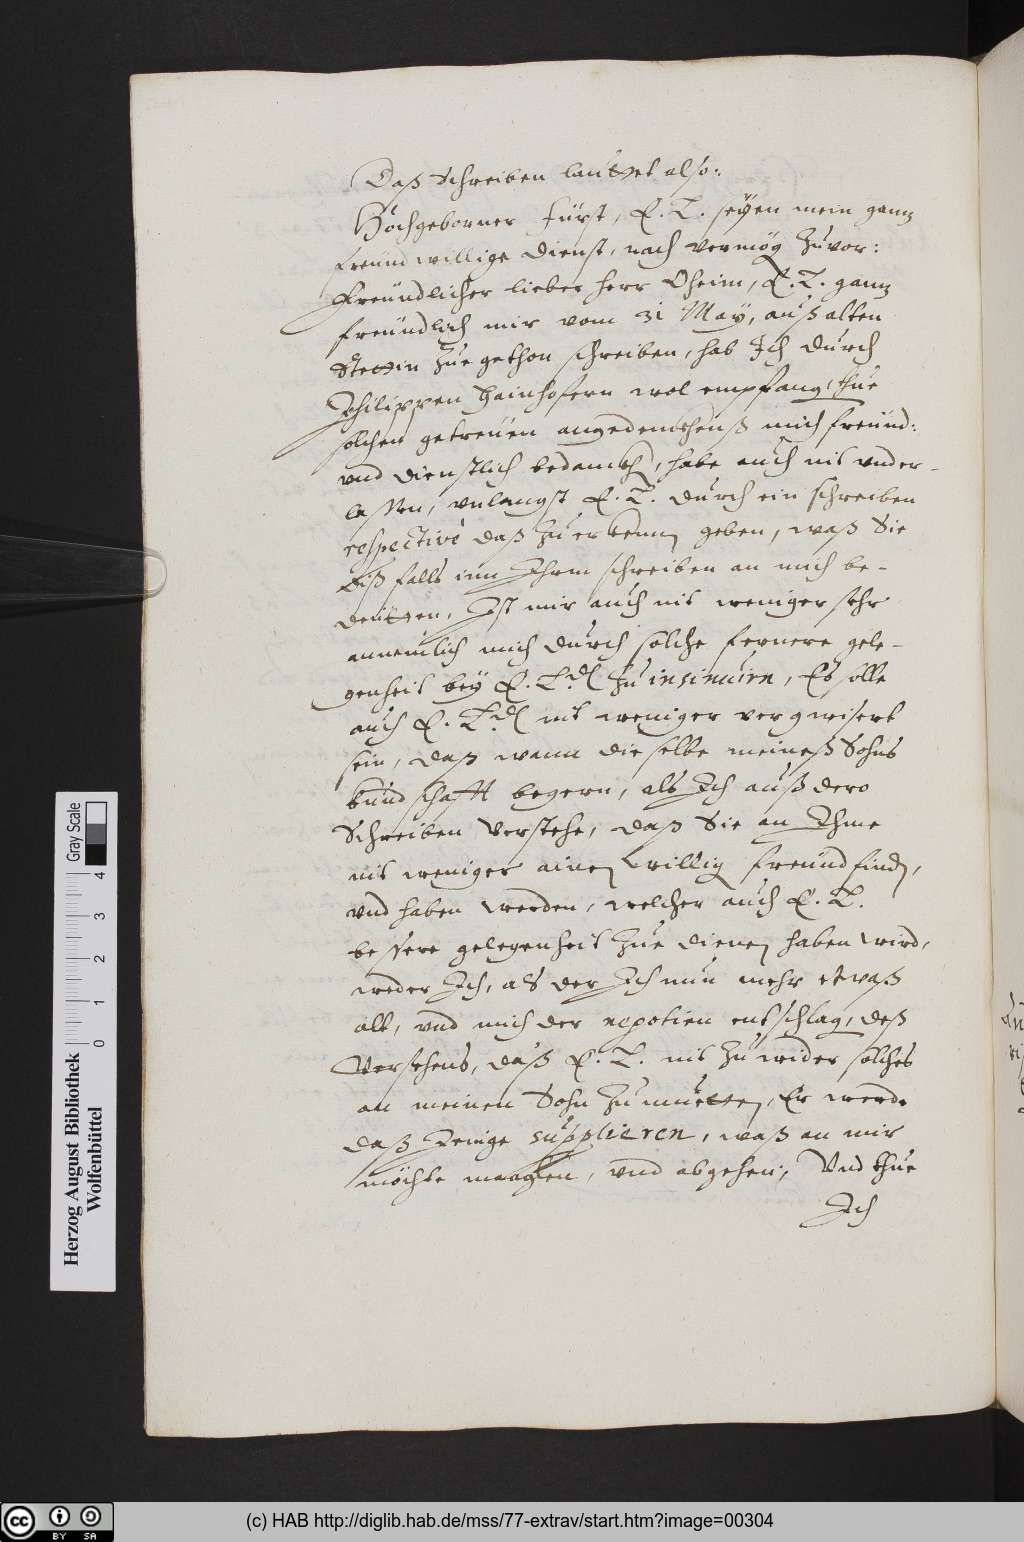 Daß Schreiben lauttet also:
Hochgeborner Fürst, E. L. seÿen mein ganz
freundwillige Dienst, nach vermög zuvor:
Freundlicher lieber herr Oheim, E. L. ganz
freundlich mir vom 31 May, auß alten
Stettin zue gethon schreiben, hab Ich durch
Philippen Hainhofern wol empfang, thue
solchen getreuen angedenckhenß mich freund:
vnd dienstlich bedanckh, habe auch nit vnder-
lassen, vnlangst E. L. durch ein schreiben
respectivè daß zu erkenn geben, waß Sie
diß falls inn Ihrm schreiben an mich be-
deutten, Ist mir auch nit weniger sehr
annemlich mich durch solche fernere gele-
genheit beÿ E. L.d zu insinuirn, Es solle
auch E. L.d nit weniger vergwisert
sein, daß wann die selbe meineß Sohns
kundschafft begern, als Ich auß dero
Schreiben verstehe, daß Sie an Ihme
nit weniger ainen willig freund find,
vnd haben werden, welcher auch E. L.
bessere gelegenheit zue dienen haben wird,
weder Ich, als der Ich nun mehr etwaß
alt, vnd mich der negotien entschlag, deß
Versehens, daß E. L. nit zuwider solches
an meinen Sohn zumuetten, Er werde
daß Jenige supplieren, waß an mir
möchte manglen, vnd abgehen; Vnd thue
Ich
Gray Scale
0 1 2 3 4
Herzog August Bibliothek
Wolfenbüttel
cc BY SA
(c) HAB http://diglib.hab.de/mss/77-extrav/start.htm?image=00304